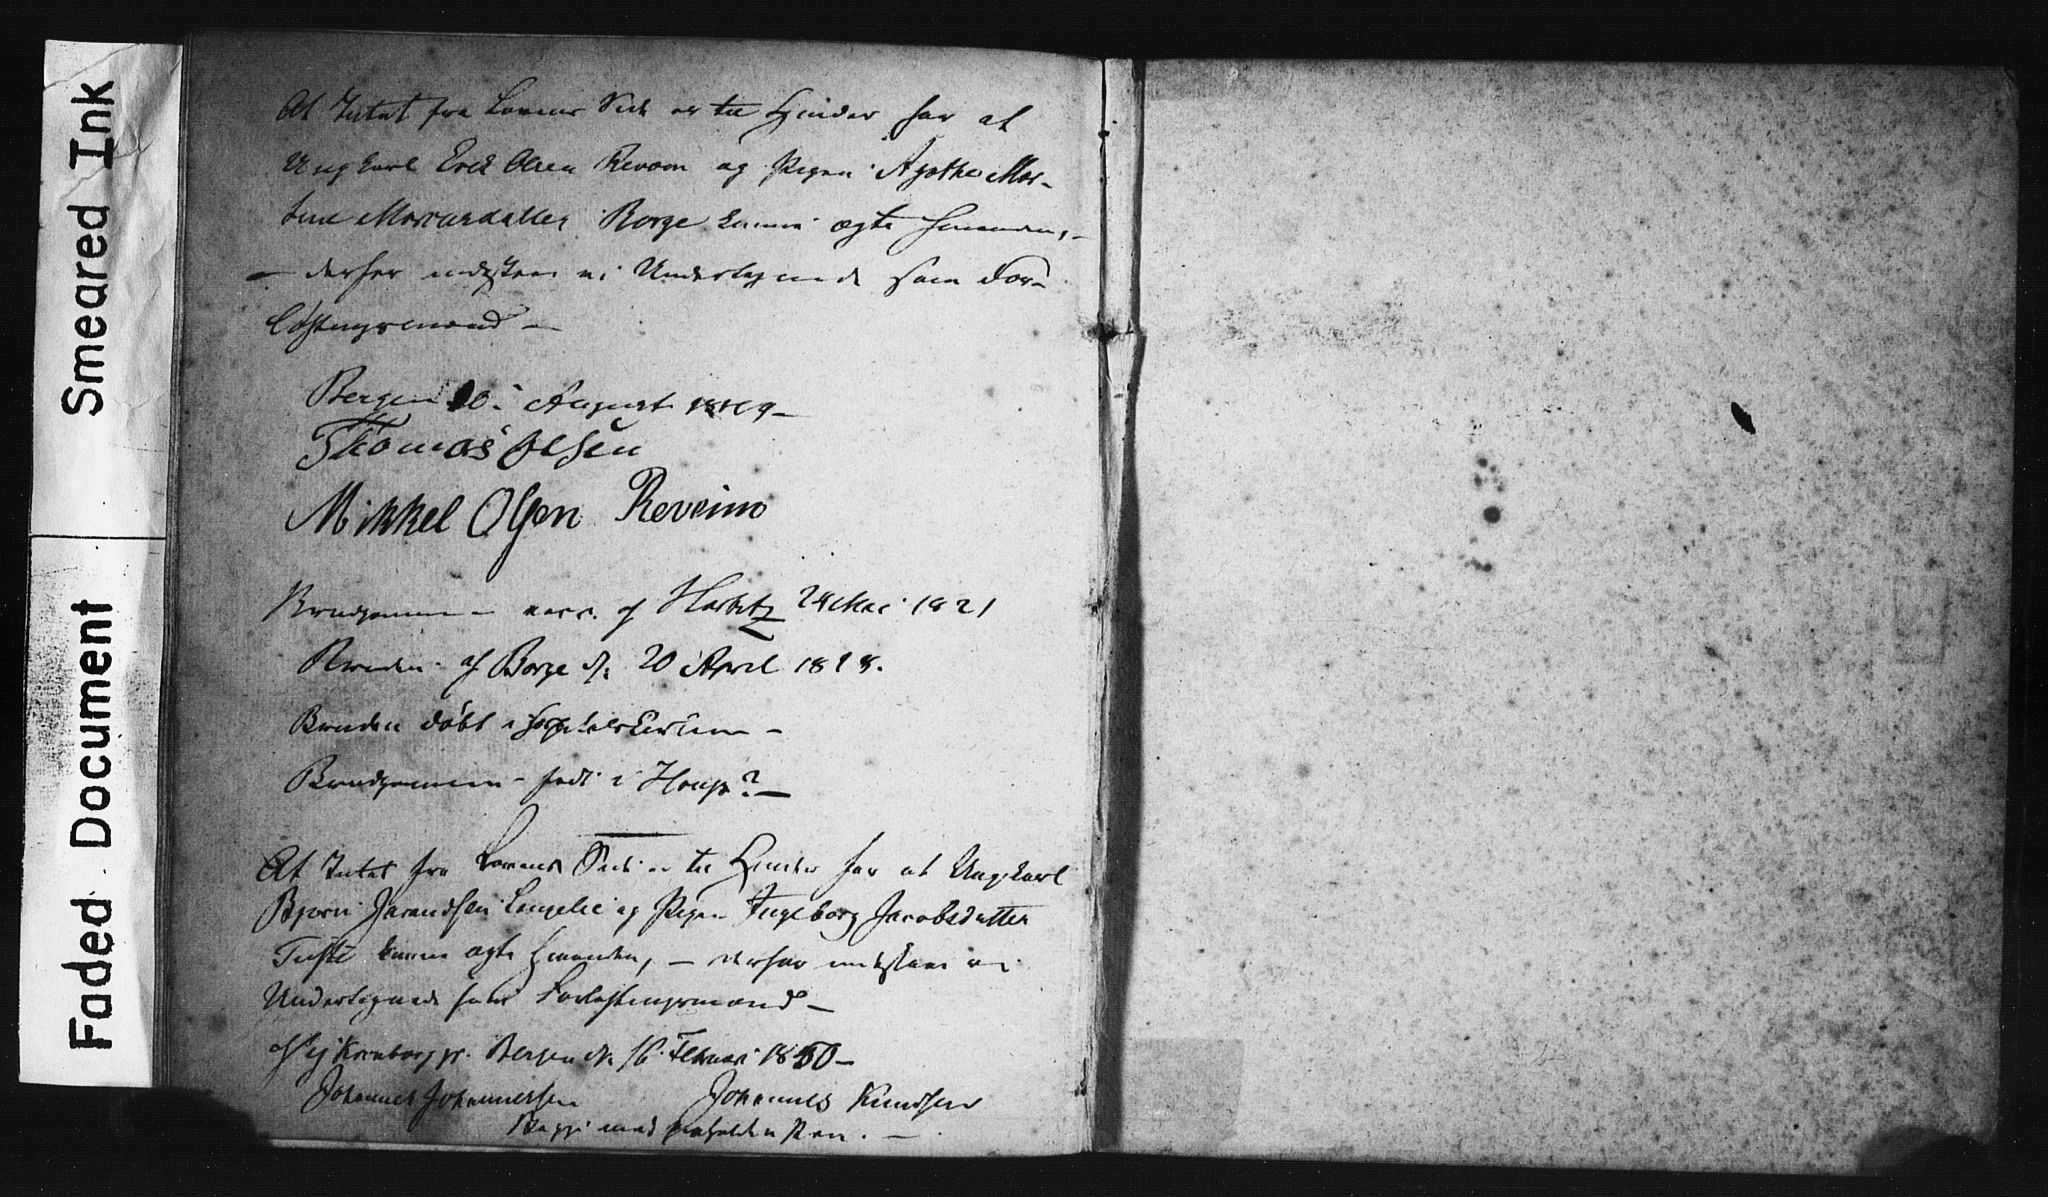 Smeared Ink
Faded Document
At Intet fra Lovens Side er til Hinder for at
Ungkarl Erik Olsen og Pigen Agathe Mar-
tine Borge kunne ægte hinanden,
– derfor indestaae vi Undertegnede som For-
lovningsmænd –
Bergen August 1849 –
Thomas Olsen
Mikkel Olsen Reveim
Brudgommen – af 24 Mai 1821
Bruden af Borge d. 20 April 1828.
Bruden døbt i Hospitalskirken –
Brudgommen – født i ? –
At Intet fra Lovens Side er til Hinder for at Ungkarl
Bjørn og Pigen Ingeborg Jacobsdatter
kunne ægte Hinanden, – derfor indestaae vi
Undertegnede som Forlovningsmænd –
Bergen d. 16 Februar 1850 –
Johannes Johannessen Johannes Knudsen
Begge med Pen. –